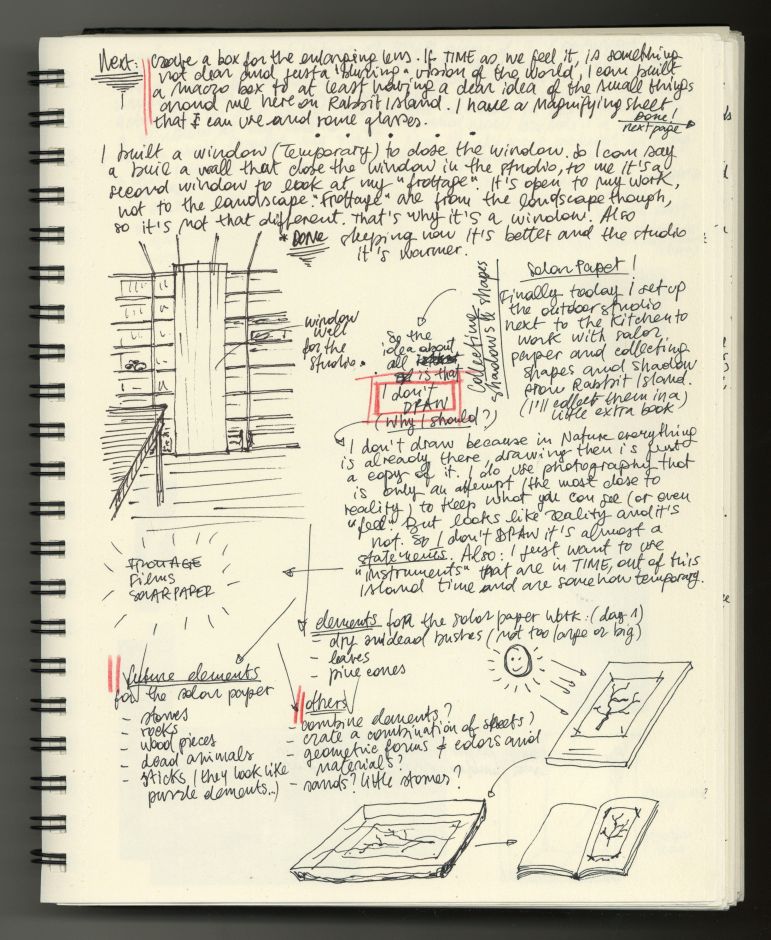 Next: create a box for the enlarging lens. If TIME as we feel it, is something
not clear and just a "blurring" vision of the world, I can built
a macro box to at least having a clear idea of the small things
around me here on Rabbit Island. I have a magnifying sheet
that I can use and some glasses.
Done!
next page
I built a window (Temporary) to close the window. So I can say
a buil a wall that close the window in the studio, to me it's a
second window to look at my "frottage". It's open to my work,
not to the landscape. "Frottage" are from the landscape though,
so it's not that different. That's why it's a window. Also
* DONE sleeping now it's better and the studio
it's warmer.
window
wall
for the
studio.
So the
idea about
all
is that
I don't
DRAW
(why I should?)
Collecting
shadows & shapes
Solar Paper!
Finally today I set up
the outdoor studio
next to the kitchen to
work with solar
paper and collecting
shapes and shadow
from Rabbit Island.
(I'll collect them in a)
little extra book
I don't draw because in Nature everything
is already there, drawing them is just
a copy of it. I do use photography that
is only an attempt (the most close to
reality) to keep what you can see (or even
"feel" but looks like reality and it's
not. So I don't DRAW it's almost a
statements. Also: I just want to use
"instruments" that are in TIME, out of this
island time and are somehow temporary.
FROTTAGE
Films
SOLAR PAPER
elements for the solar paper work: (day 1)
- dry and dead bushes (not too large or big)
- leaves
- pine cones
future elements
for the solar paper
- stones
- rocks
- wood pieces
- dead animals
- sticks (they look like
puzzle elements..)
others
- combine elements?
- crate a combination of sheets?
- geometric forms & colors and
materials?
- sands? little stones?